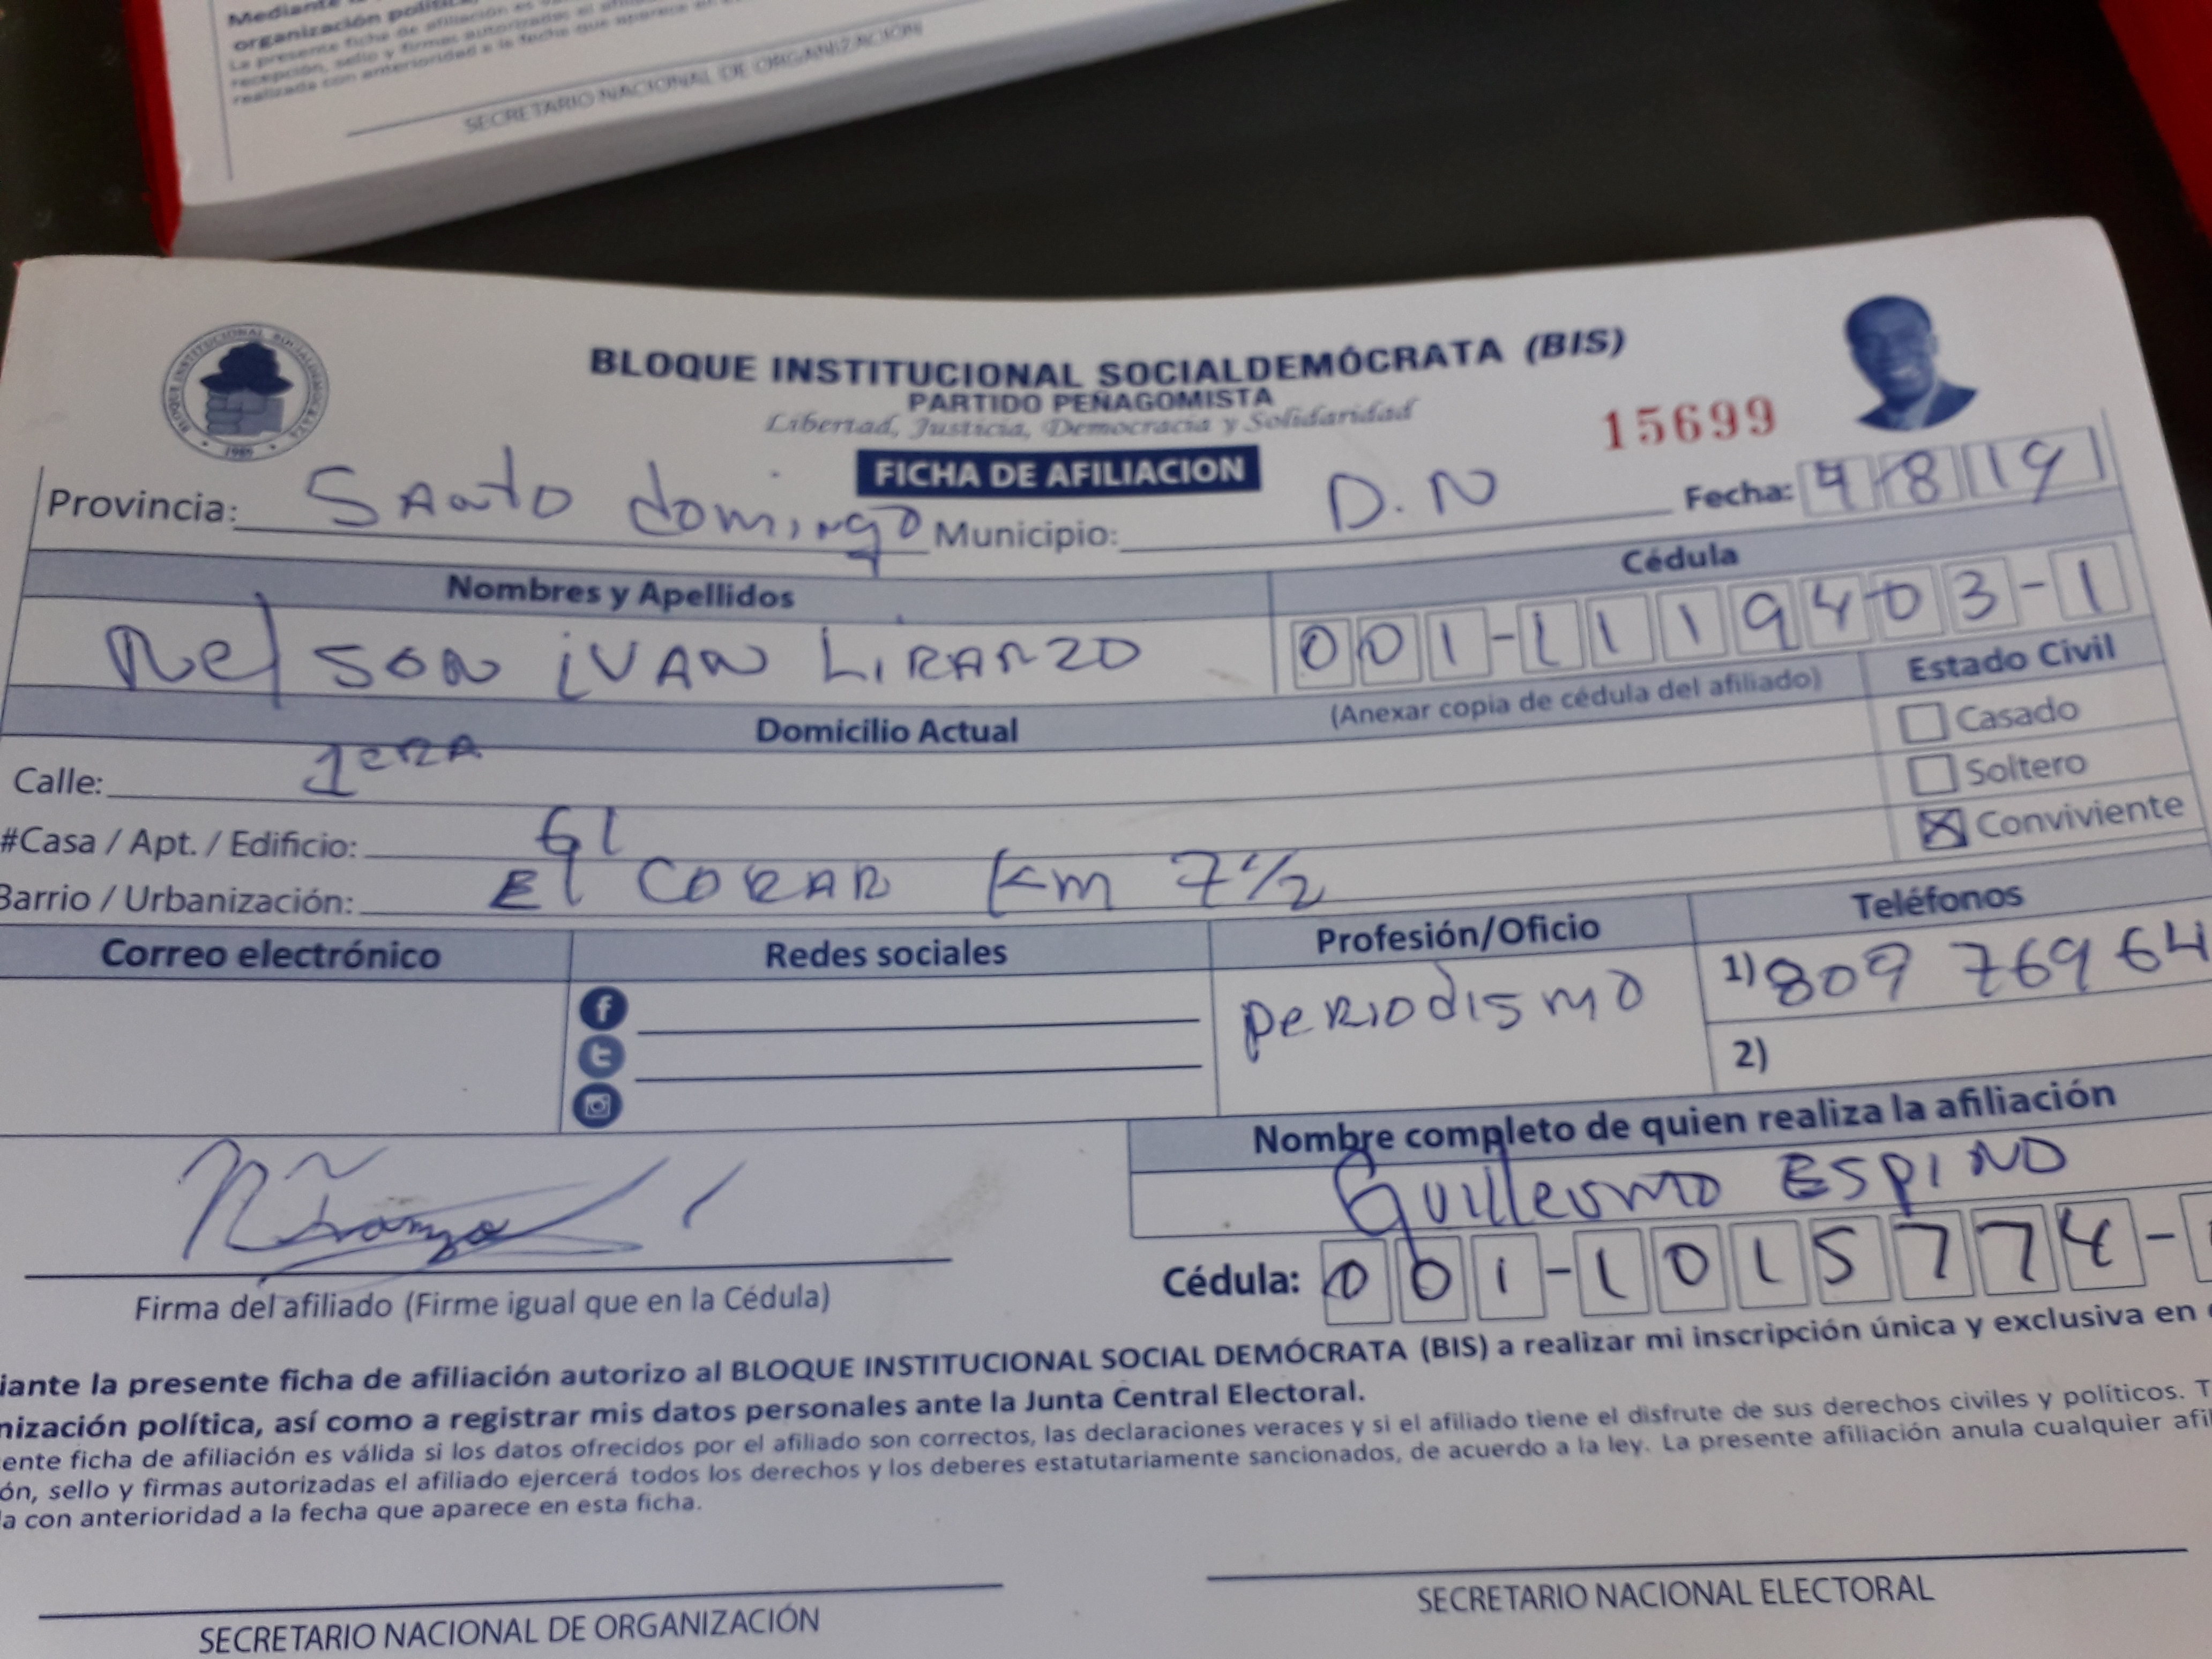 Mediante la
organización política,
La presente ficha de afiliación es
recepción, sello y firmas autorizadas el
realizada con anterioridad a la fecha que aparece en
SECRETARIO NACIONAL DE ORGANIZACIÓN
BLOQUE INSTITUCIONAL SOCIALDEMOCRATA
1989
BLOQUE INSTITUCIONAL SOCIALDEMÓCRATA (BIS)
PARTIDO PEÑAGOMISTA
Libertad, Justicia, Democracia y Solidaridad
15699
FICHA DE AFILIACION
Provincia: Santo domingo Municipio: D.N Fecha: 4 8 19
Nombres y Apellidos Cédula
Nelson iVAN LiRANZO 001-1119403-1
(Anexar copia de cédula del afiliado)
Domicilio Actual Estado Civil
Calle: 1eRA Casado
Soltero
#Casa / Apt. / Edificio: 61 Conviviente
Barrio / Urbanización: El CORAR Km 7 1/2
Correo electrónico Redes sociales Profesión/Oficio Teléfonos
periodismo 1) 809 769 64
2)
Nombre completo de quien realiza la afiliación
Guillermo ESPINO
Cédula: 001-1015774-
Firma del afiliado (Firme igual que en la Cédula)
iante la presente ficha de afiliación autorizo al BLOQUE INSTITUCIONAL SOCIAL DEMÓCRATA (BIS) a realizar mi inscripción única y exclusiva en
nización política, así como a registrar mis datos personales ante la Junta Central Electoral.
ente ficha de afiliación es válida si los datos ofrecidos por el afiliado son correctos, las declaraciones veraces y si el afiliado tiene el disfrute de sus derechos civiles y políticos. T
ón, sello y firmas autorizadas el afiliado ejercerá todos los derechos y los deberes estatutariamente sancionados, de acuerdo a la ley. La presente afiliación anula cualquier afil
a con anterioridad a la fecha que aparece en esta ficha.
SECRETARIO NACIONAL DE ORGANIZACIÓN SECRETARIO NACIONAL ELECTORAL